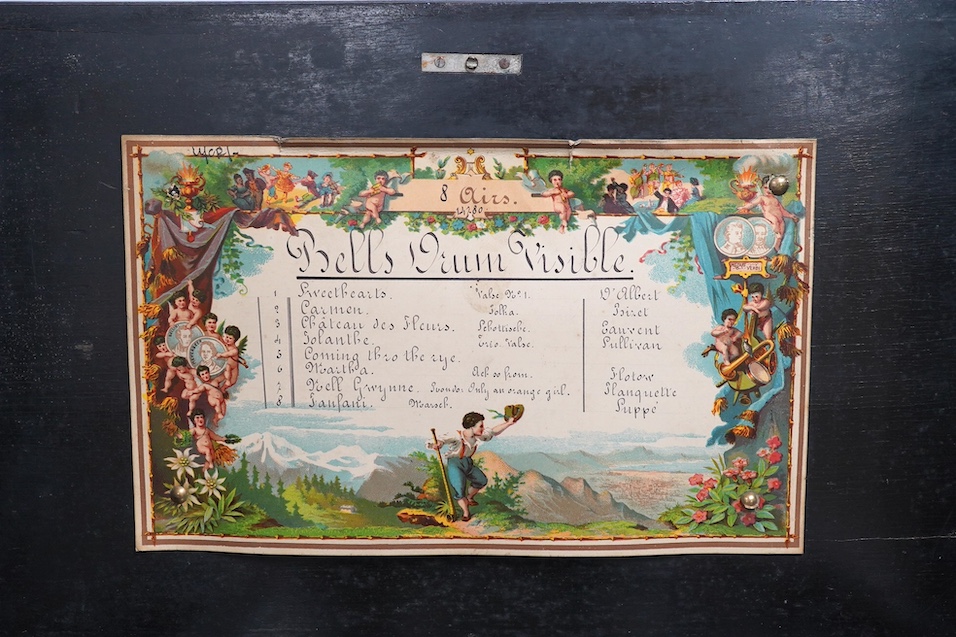 8 Airs.
14280
Bells Drum Visible.
1 Sweethearts. Valse No. 1. D'Albert
2 Carmen. Polka. Bizet
3 Château des Fleurs. Schottische. Gauvent
4 Iolanthe. Trio. Valse. Sullivan
5 Coming thro the rye.
6 Martha. Ach so from. Flotow
7 Nell Gwynne. Rondo. Only an orange girl. Planquette
8 Fanfani. Marsch. Suppé